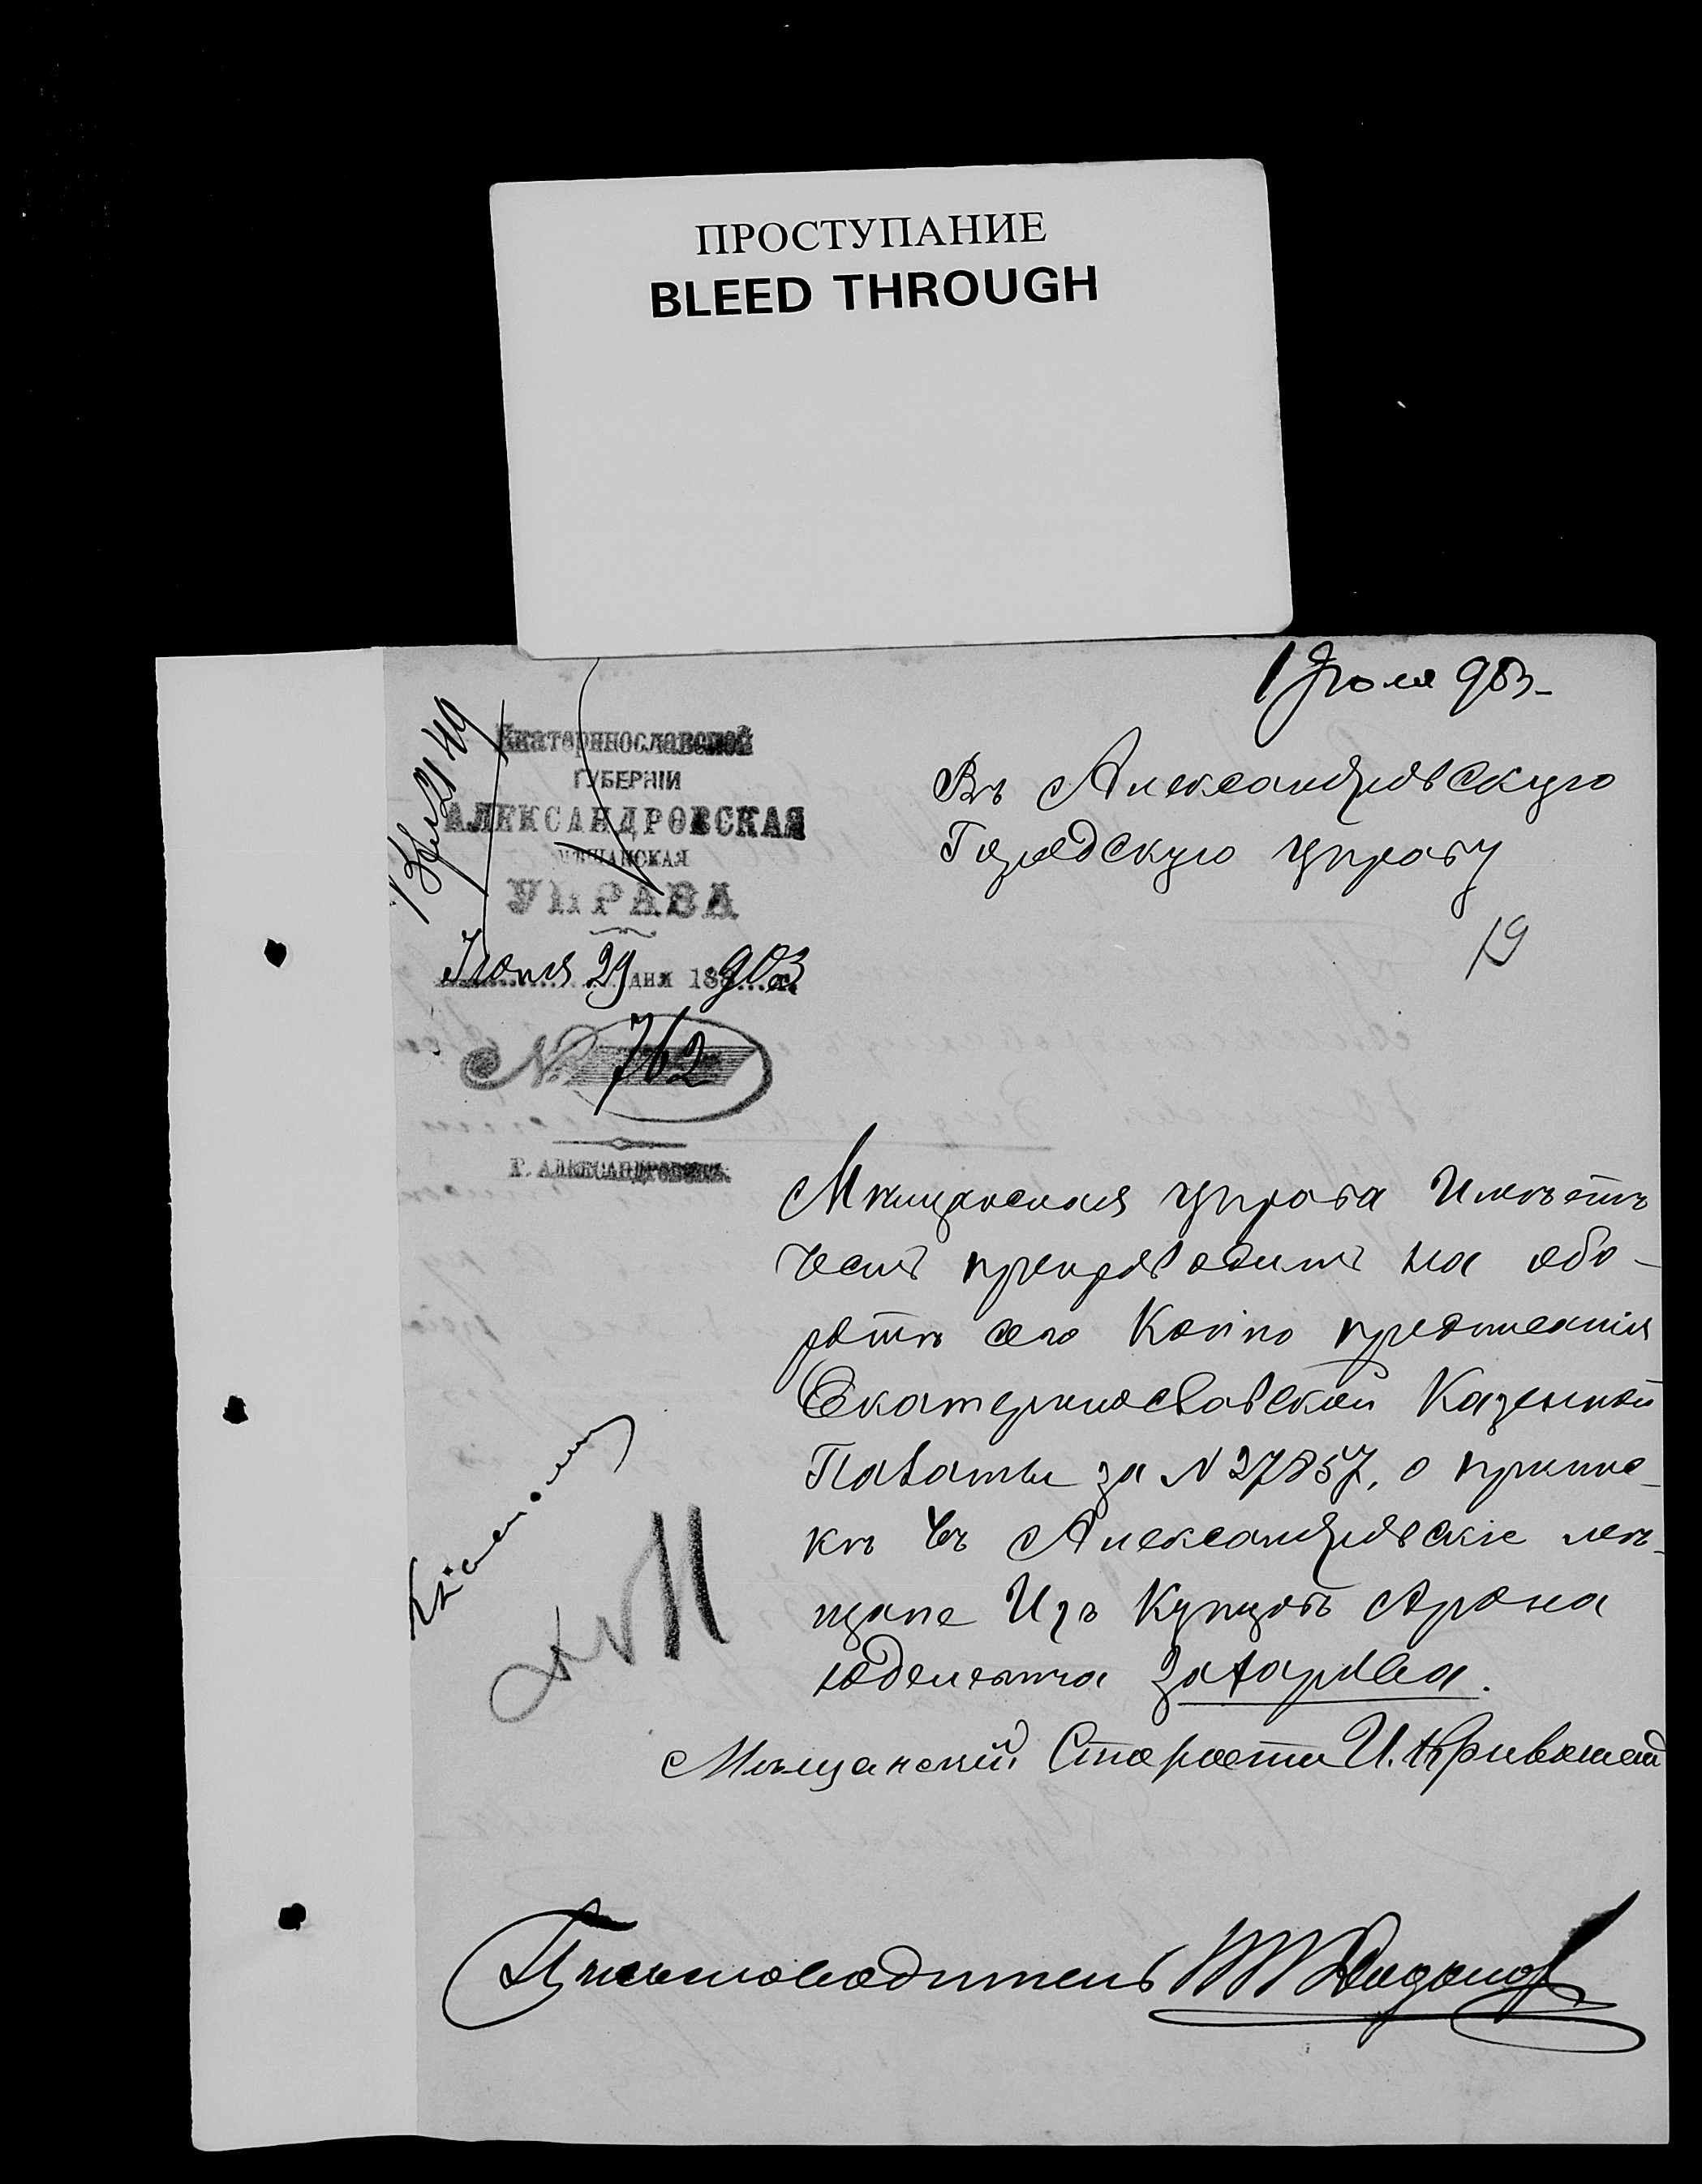 ПРОСТУПАНИЕ
BLEED THROUGH
1 Іюля 903
Екатеринославской
ГУБЕРНІИ
АЛЕКСАНДРОВСКАЯ
МѢЩАНСКАЯ
УПРАВА
Іюня 29 дня 188 903 г.
№ 762
Г. АЛЕКСАНДРОВСКЪ.
Въ Александровскую
Городскую управу
19
Мѣщанская управа Имѣетъ
честь препроводить на обо-
ротѣ сего Копію предписанія
Екатеринославской Казенной
Палаты за N 27857, о припис-
кѣ въ Александровскіе мѣ-
щане Изъ Купцовъ Арона
Юделевича Захарова.
Мѣщанскій Староста И.
Письмоводитель